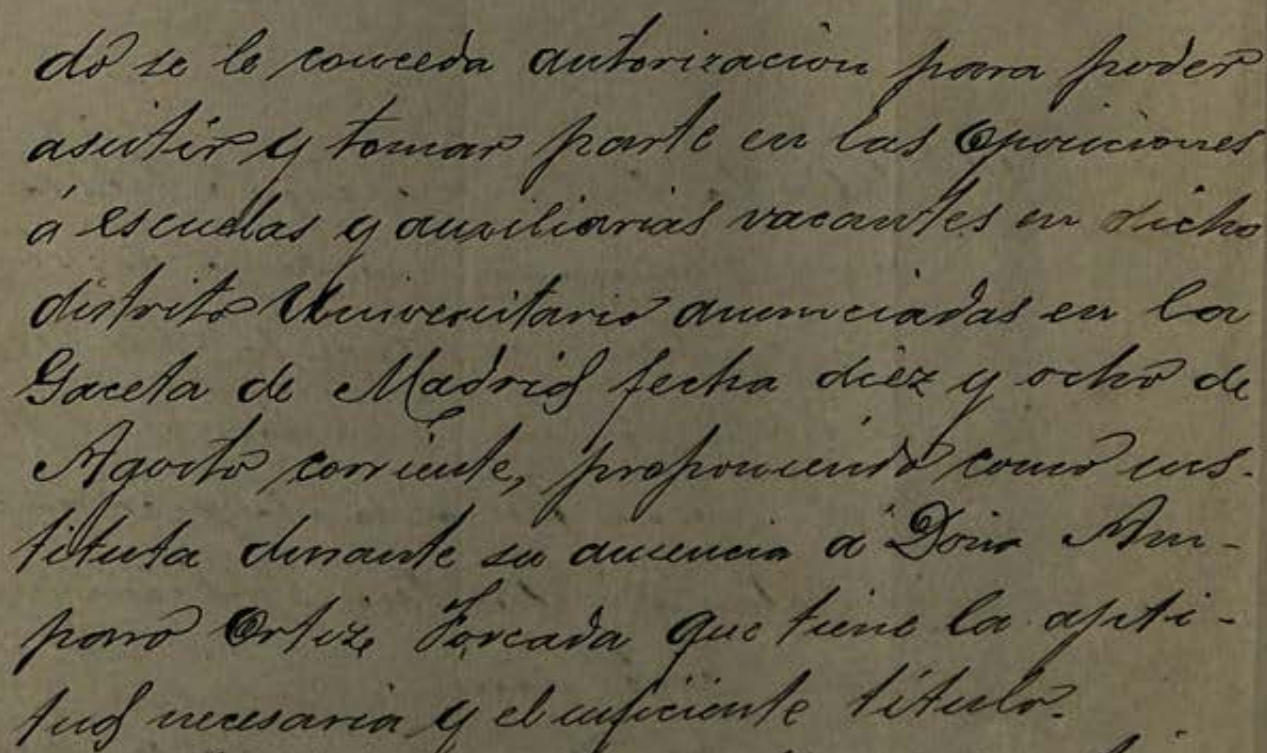 do se le conceda autorización para poder
asistir y tomar parte en las Oposiciones
á escuelas y auxiliarias vacantes en dicho
distrito Universitario anunciadas en la
Gaceta de Madrid fecha diez y ocho de
Agosto corriente, proponiendo como sus-
tituta durante su ausencia á Doña Am-
paro Ortiz, Forcada que tiene la apti-
tud necesaria y el suficiente título.